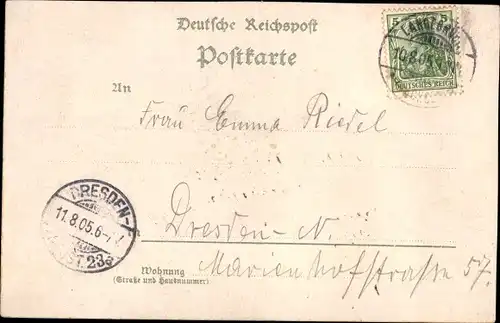 Deutsche Reichspost
Postkarte
5 5
10.8.05.
DEUTSCHES REICH
An
Frau Emma Riedel
DRESDEN-
11.8.05.6-7
23a
Dresden-N.
Wohnung
(Straße und Hausnummer)
Marienhofstrasse 57.